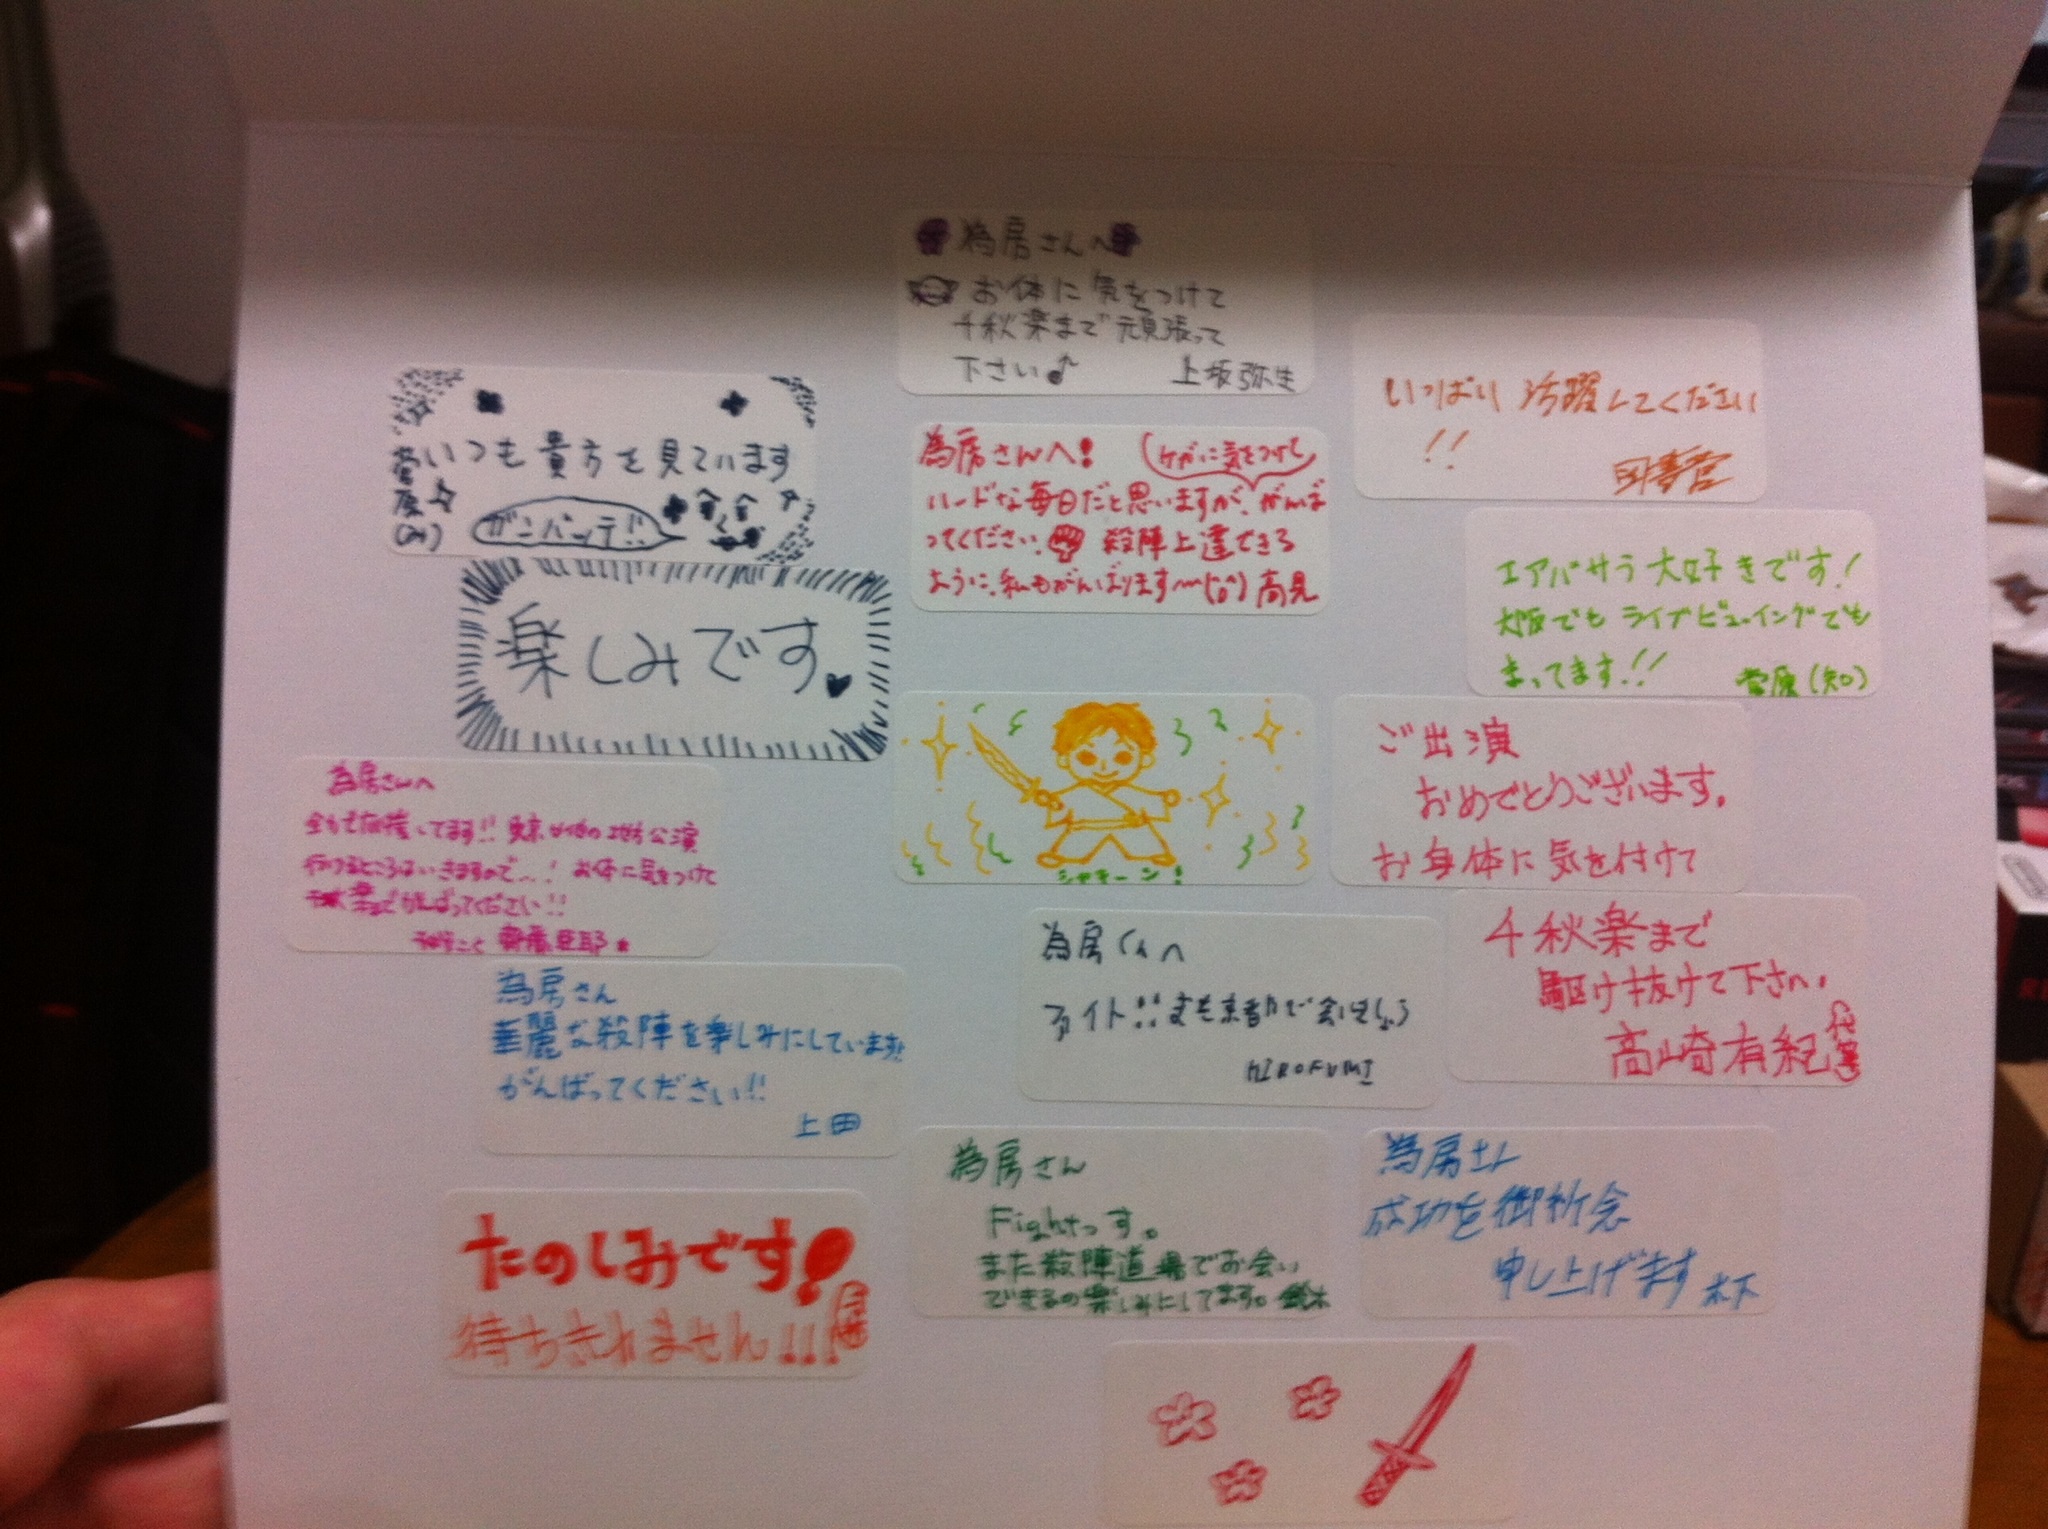 為房さんへ
お体に気をつけて
千秋楽まで頑張って
下さい♪ 上坂弥生
いつも貴方を見ています
菅原
ガンバッテ!!
楽しみです。
為房さんへ! (ケガに気をつけて)
ハードな毎日だと思いますが、がんば
ってください。殺陣上達できる
ように、私もがんばります 高見
いっぱい活躍してください
!!
エアバサラ大好きです!
大阪でもライブビューイングでも
まってます!! 菅原(知)
シャキーン!
ご出演
おめでとうございます。
お身体に気を付けて
千秋楽まで
駆け抜けて下さい。
高崎有紀 (代筆)
為房さんへ
全力で応援してます!! 東京以外の地方公演
行けるところはいきますので…! お体に気をつけて
千秋楽までがんばってください!!
為房さん
華麗な殺陣を楽しみにしています!!
がんばってください!!
上田
為房くんへ
ファイト!! また京都で会いましょう
HIROFUMI
たのしみです!
待ちきれません!!!
為房さん
Fightっす。
また殺陣道場でお会い
できるの楽しみにしてます。鈴木
為房さん
成功を御祈念
申し上げます 木下